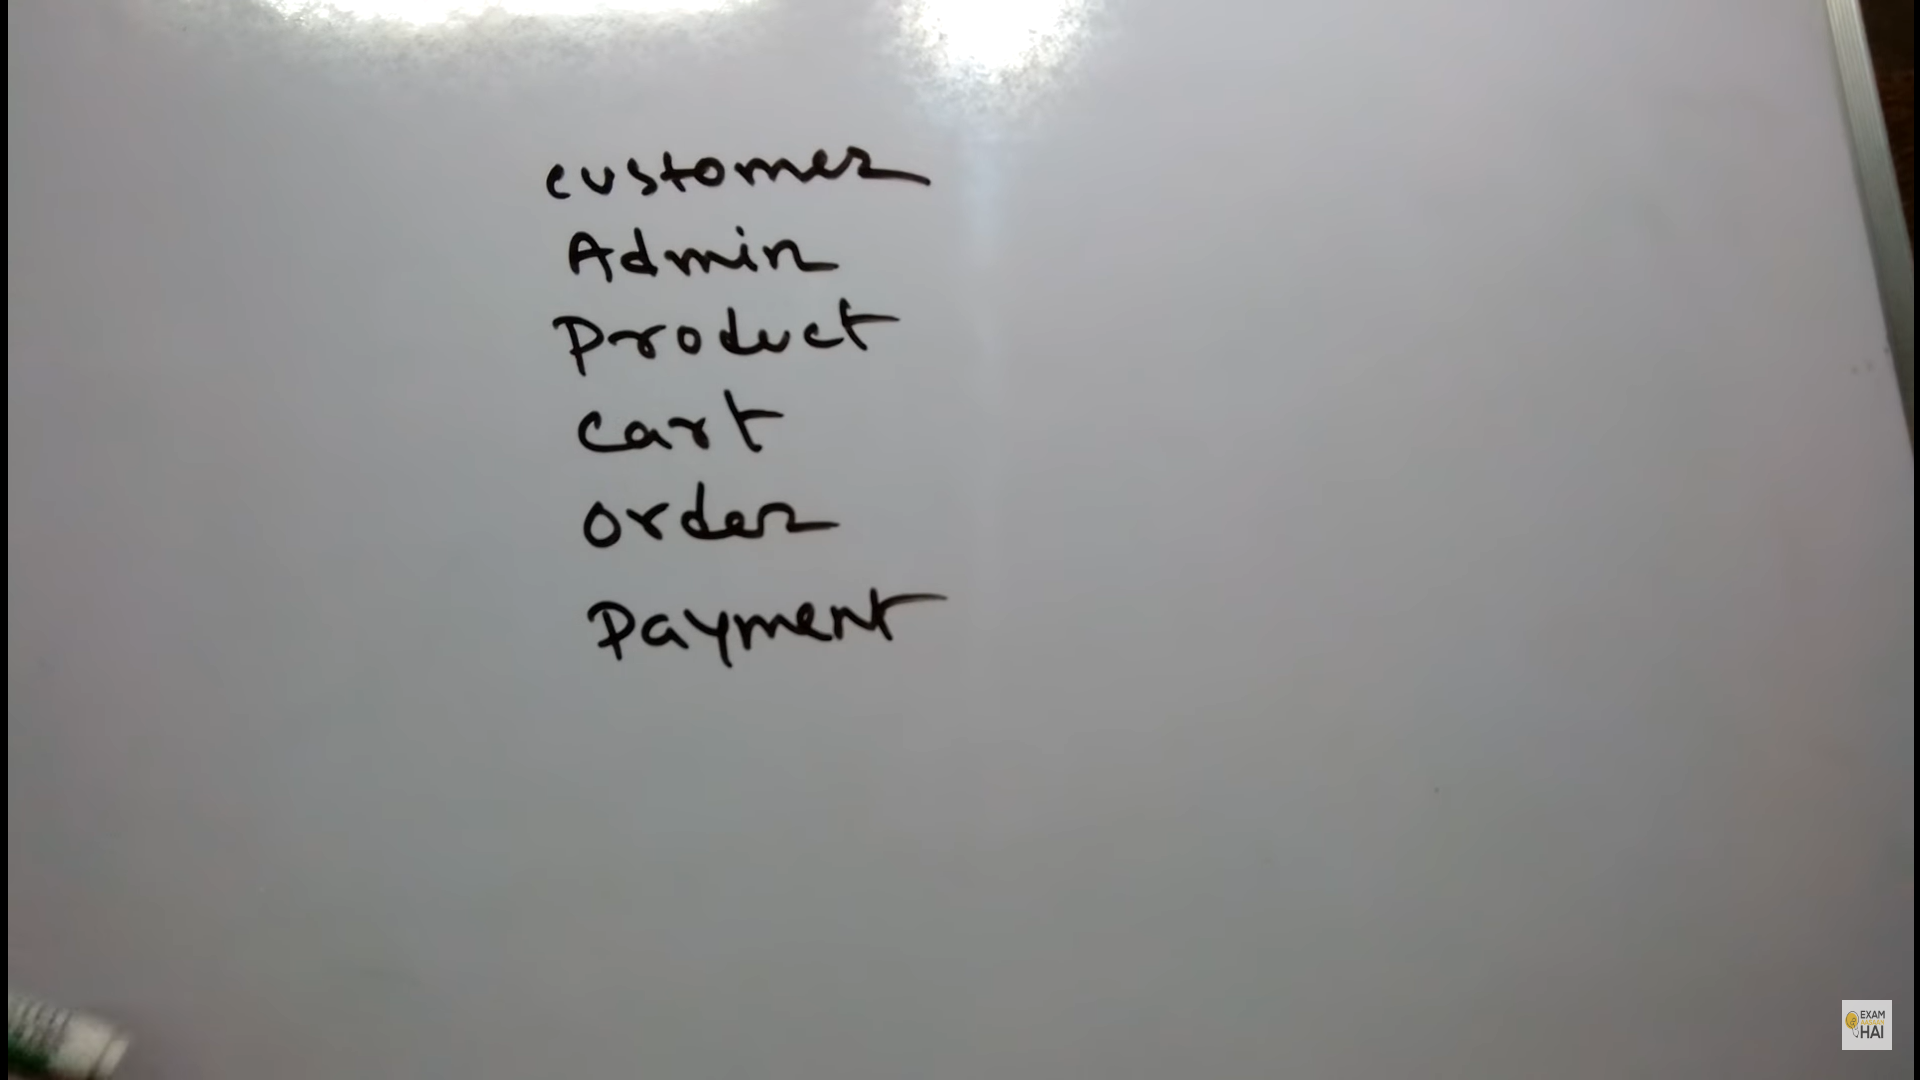 customer
Admin
Product
cart
order
Payment
EXAM
HAI